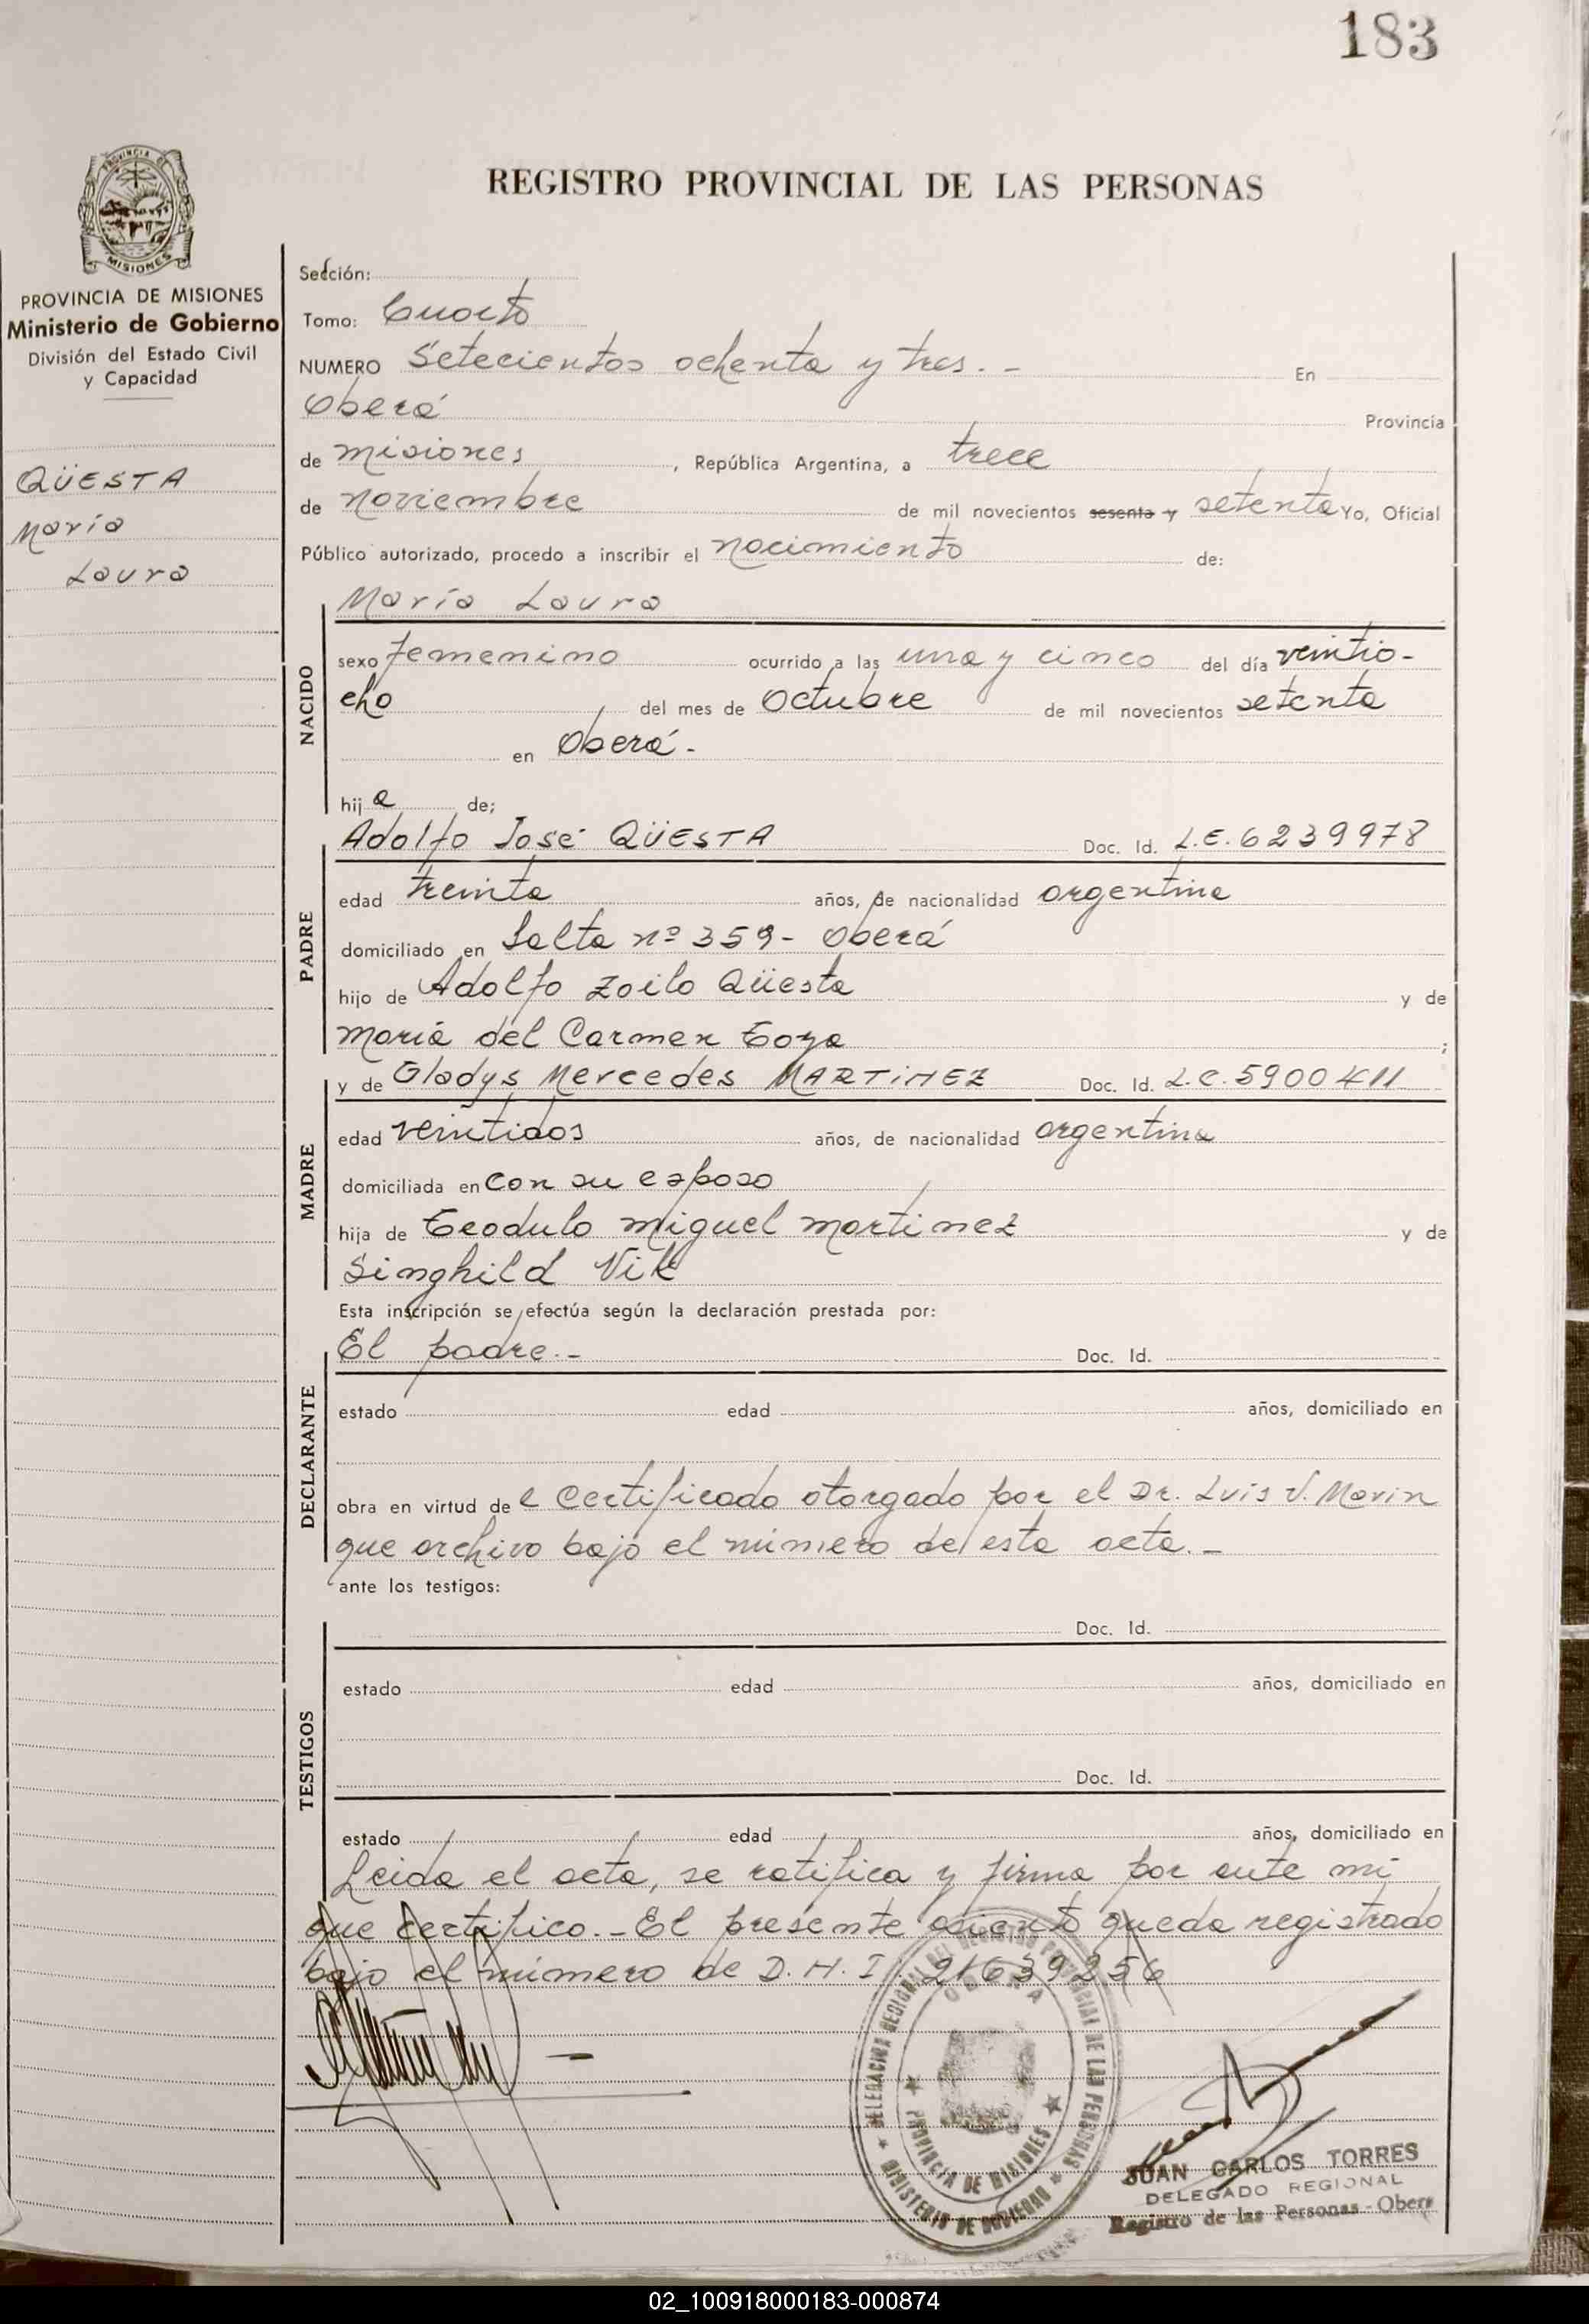 183
PROVINCIA DE
MISIONES
REGISTRO PROVINCIAL DE LAS PERSONAS
PROVINCIA DE MISIONES
Ministerio de Gobierno
División del Estado Civil
y Capacidad
QÜESTA
María
Laura
Sección:
Tomo: Cuarto
NUMERO Setecientos ochenta y tres.- En
Oberá Provincia
de misiones, República Argentina, a trece
de noviembre de mil novecientos sesenta y setenta Yo, Oficial
Público autorizado, procedo a inscribir el nacimiento de:
María Laura
NACIDO
sexo femenino ocurrido a las una y cinco del día veintio-
cho del mes de Octubre de mil novecientos setenta
en Oberá.
hija de;
Adolfo José QÜESTA Doc. Id. L.E. 6239978
PADRE
edad treinta años, de nacionalidad argentina
domiciliado en Salta nº 359- Oberá
hijo de Adolfo Zoilo Qüesta y de
María del Carmen Goya ;
y de Gladys Mercedes MARTINEZ Doc. Id. L.C. 5900411
MADRE
edad veintidos años, de nacionalidad argentina
domiciliada en con su esposo
hija de Teodulo miguel martinez y de
Singhild Vik
Esta inscripción se efectúa según la declaración prestada por:
El padre.- Doc. Id.
DECLARANTE
estado edad años, domiciliado en
obra en virtud de l certificado otorgado por el Dr. Luis V. Marin
que archivo bajo el número de esta acta.-
ante los testigos:
Doc. Id.
TESTIGOS
estado edad años, domiciliado en
Doc. Id.
estado edad años, domiciliado en
Leida el acta, se ratifica y firma por ante mi
que certifico.- El presente asiento queda registrado
bajo el número de D.N.I. 21639256
DELEGACION REGIONAL DEL REGISTRO PROVINCIAL DE LAS PERSONAS
OBERA
PROVINCIA DE MISIONES
MINISTERIO DE GOBIERNO
JUAN CARLOS TORRES
DELEGADO REGIONAL
Registro de las Personas - Obera
02_100918000183-000874